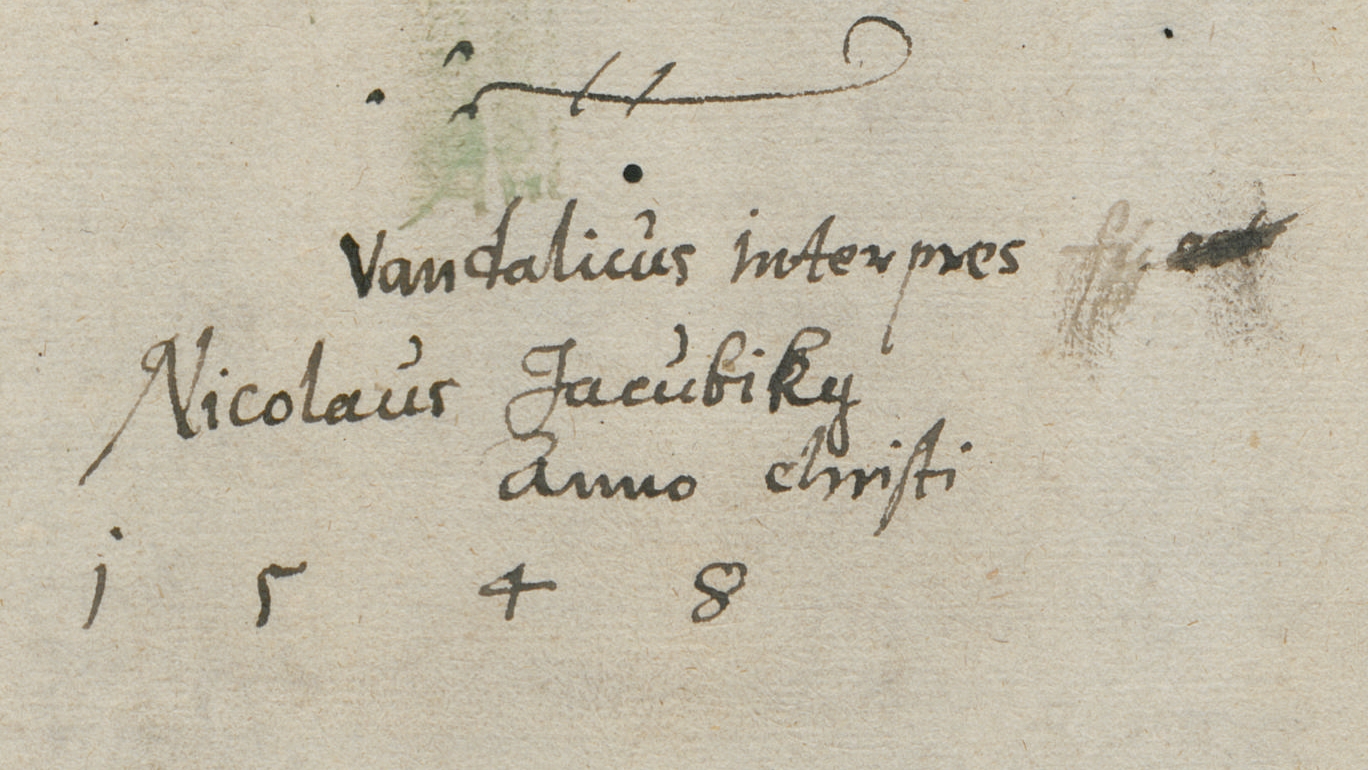 Vandalicus interpres
Nicolaus Jacubiky
Anno christi
1 5 4 8